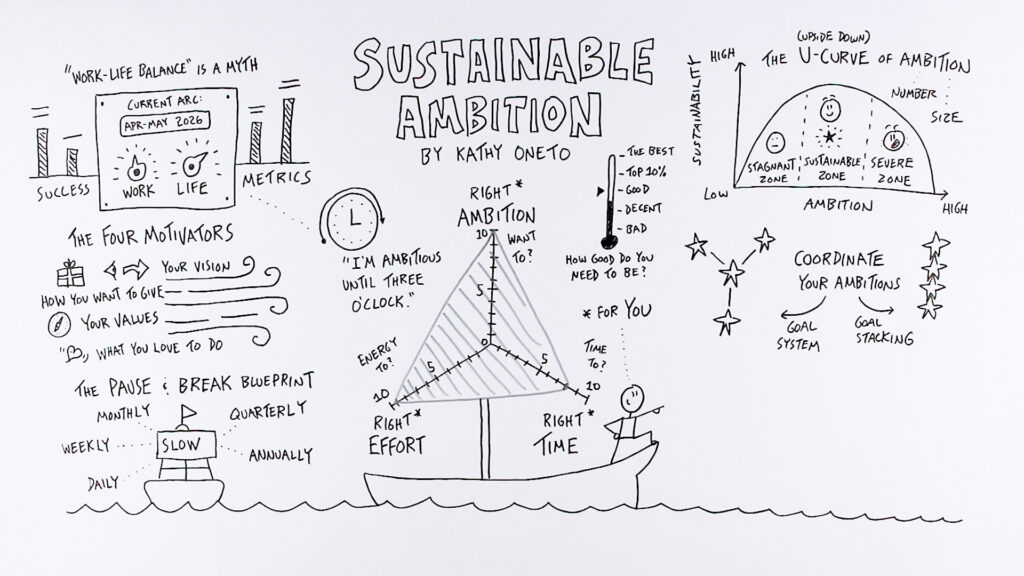 SUSTAINABLE
AMBITION
BY KATHY ONETO
"WORK-LIFE BALANCE" IS A MYTH
CURRENT ARC:
APR-MAY 2026
WORK
LIFE
SUCCESS
METRICS
THE FOUR MOTIVATORS
YOUR VISION
HOW YOU WANT TO GIVE
YOUR VALUES
WHAT YOU LOVE TO DO
THE PAUSE & BREAK BLUEPRINT
MONTHLY
QUARTERLY
WEEKLY
SLOW
ANNUALLY
DAILY
"I'M AMBITIOUS
UNTIL THREE
O'CLOCK."
RIGHT*
AMBITION
10
WANT
TO?
5
0
ENERGY
TO?
5
10
RIGHT*
EFFORT
TIME
TO?
5
10
RIGHT*
TIME
THE BEST
TOP 10%
GOOD
DECENT
BAD
HOW GOOD DO YOU
NEED TO BE?
* FOR YOU
(UPSIDE DOWN)
THE U-CURVE OF AMBITION
NUMBER
SIZE
SUSTAINABILITY
HIGH
LOW
STAGNANT
ZONE
SUSTAINABLE
ZONE
SEVERE
ZONE
AMBITION
HIGH
COORDINATE
YOUR AMBITIONS
GOAL
SYSTEM
GOAL
STACKING